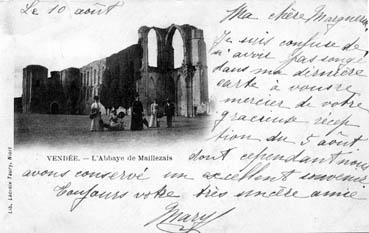 Le 10 août
Ma chère
Je suis confuse de
n'avoir pas songé
dans ma dernière
carte à vous
mercier de votre
gracieuse récep
tion du 5 août
VENDÉE. — L'Abbaye de Maillezais
dont cependant nous
avons conservé un excellent souvenir
Toujours votre très sincère amie
Mary
Lib. Lacroix Taury, Niort